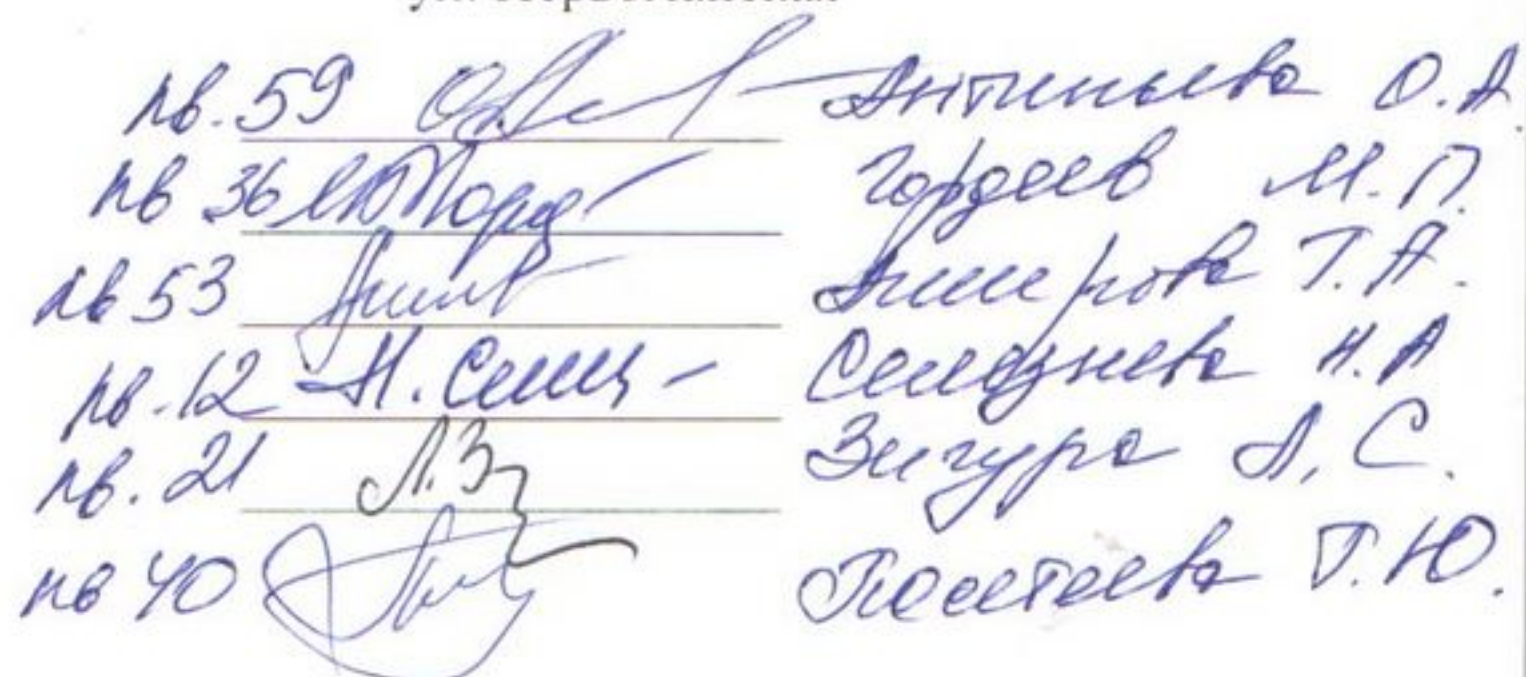 кв. 59 Антипьева О.А.
кв 36 Гордеев М.П.
кв 53 Амерова Т.А.
кв. 12 Н. Селез Селезнева Н.А
кв. 21 Л.З Зигура Л.С.
кв 40 Т.Ю.